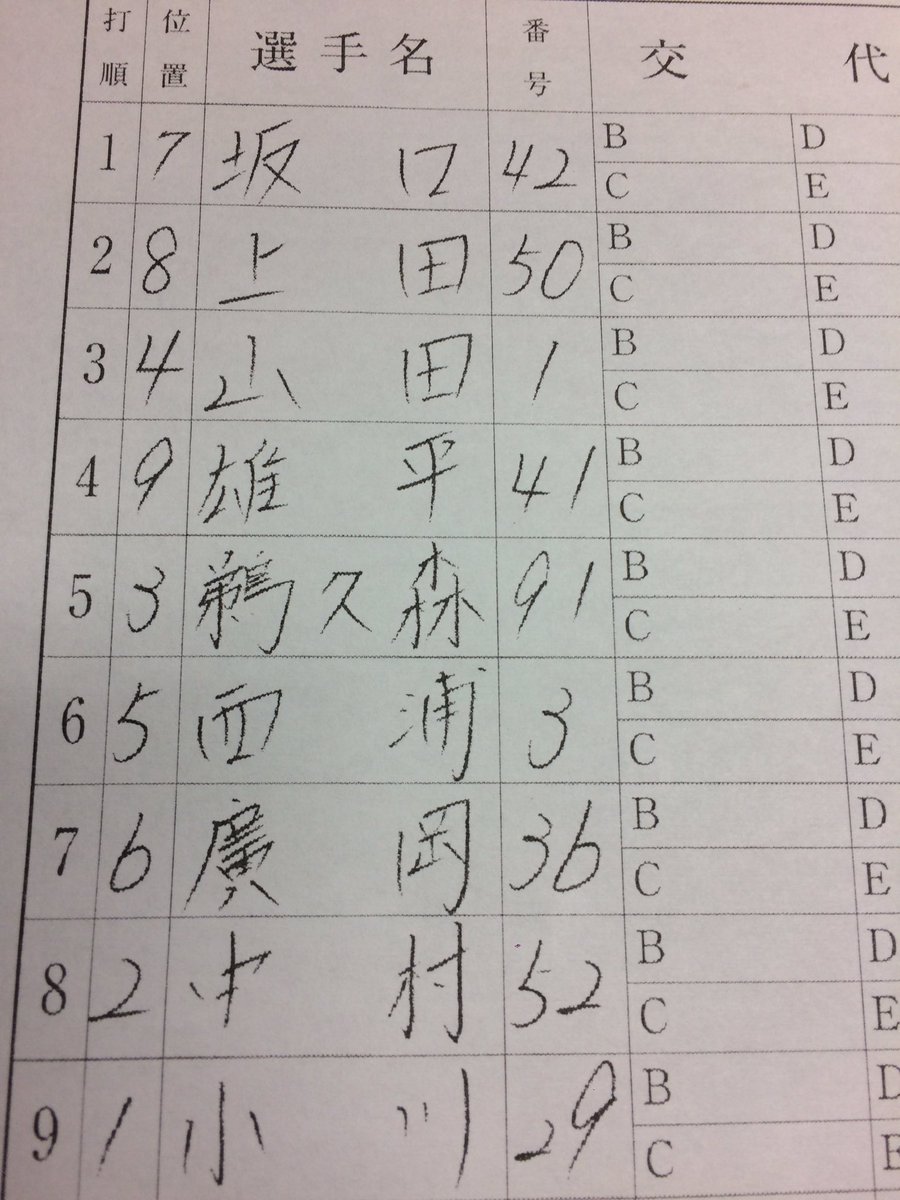 打順 位置 選手名 番号 交代
1 7 坂口 42 B D
C E
2 8 上田 50 B D
C E
3 4 山田 1 B D
C E
4 9 雄平 41 B D
C E
5 3 鵜久森 91 B D
C E
6 5 西浦 3 B D
C E
7 6 廣岡 36 B D
C E
8 2 中村 52 B D
C E
9 1 小川 29 B D
C E